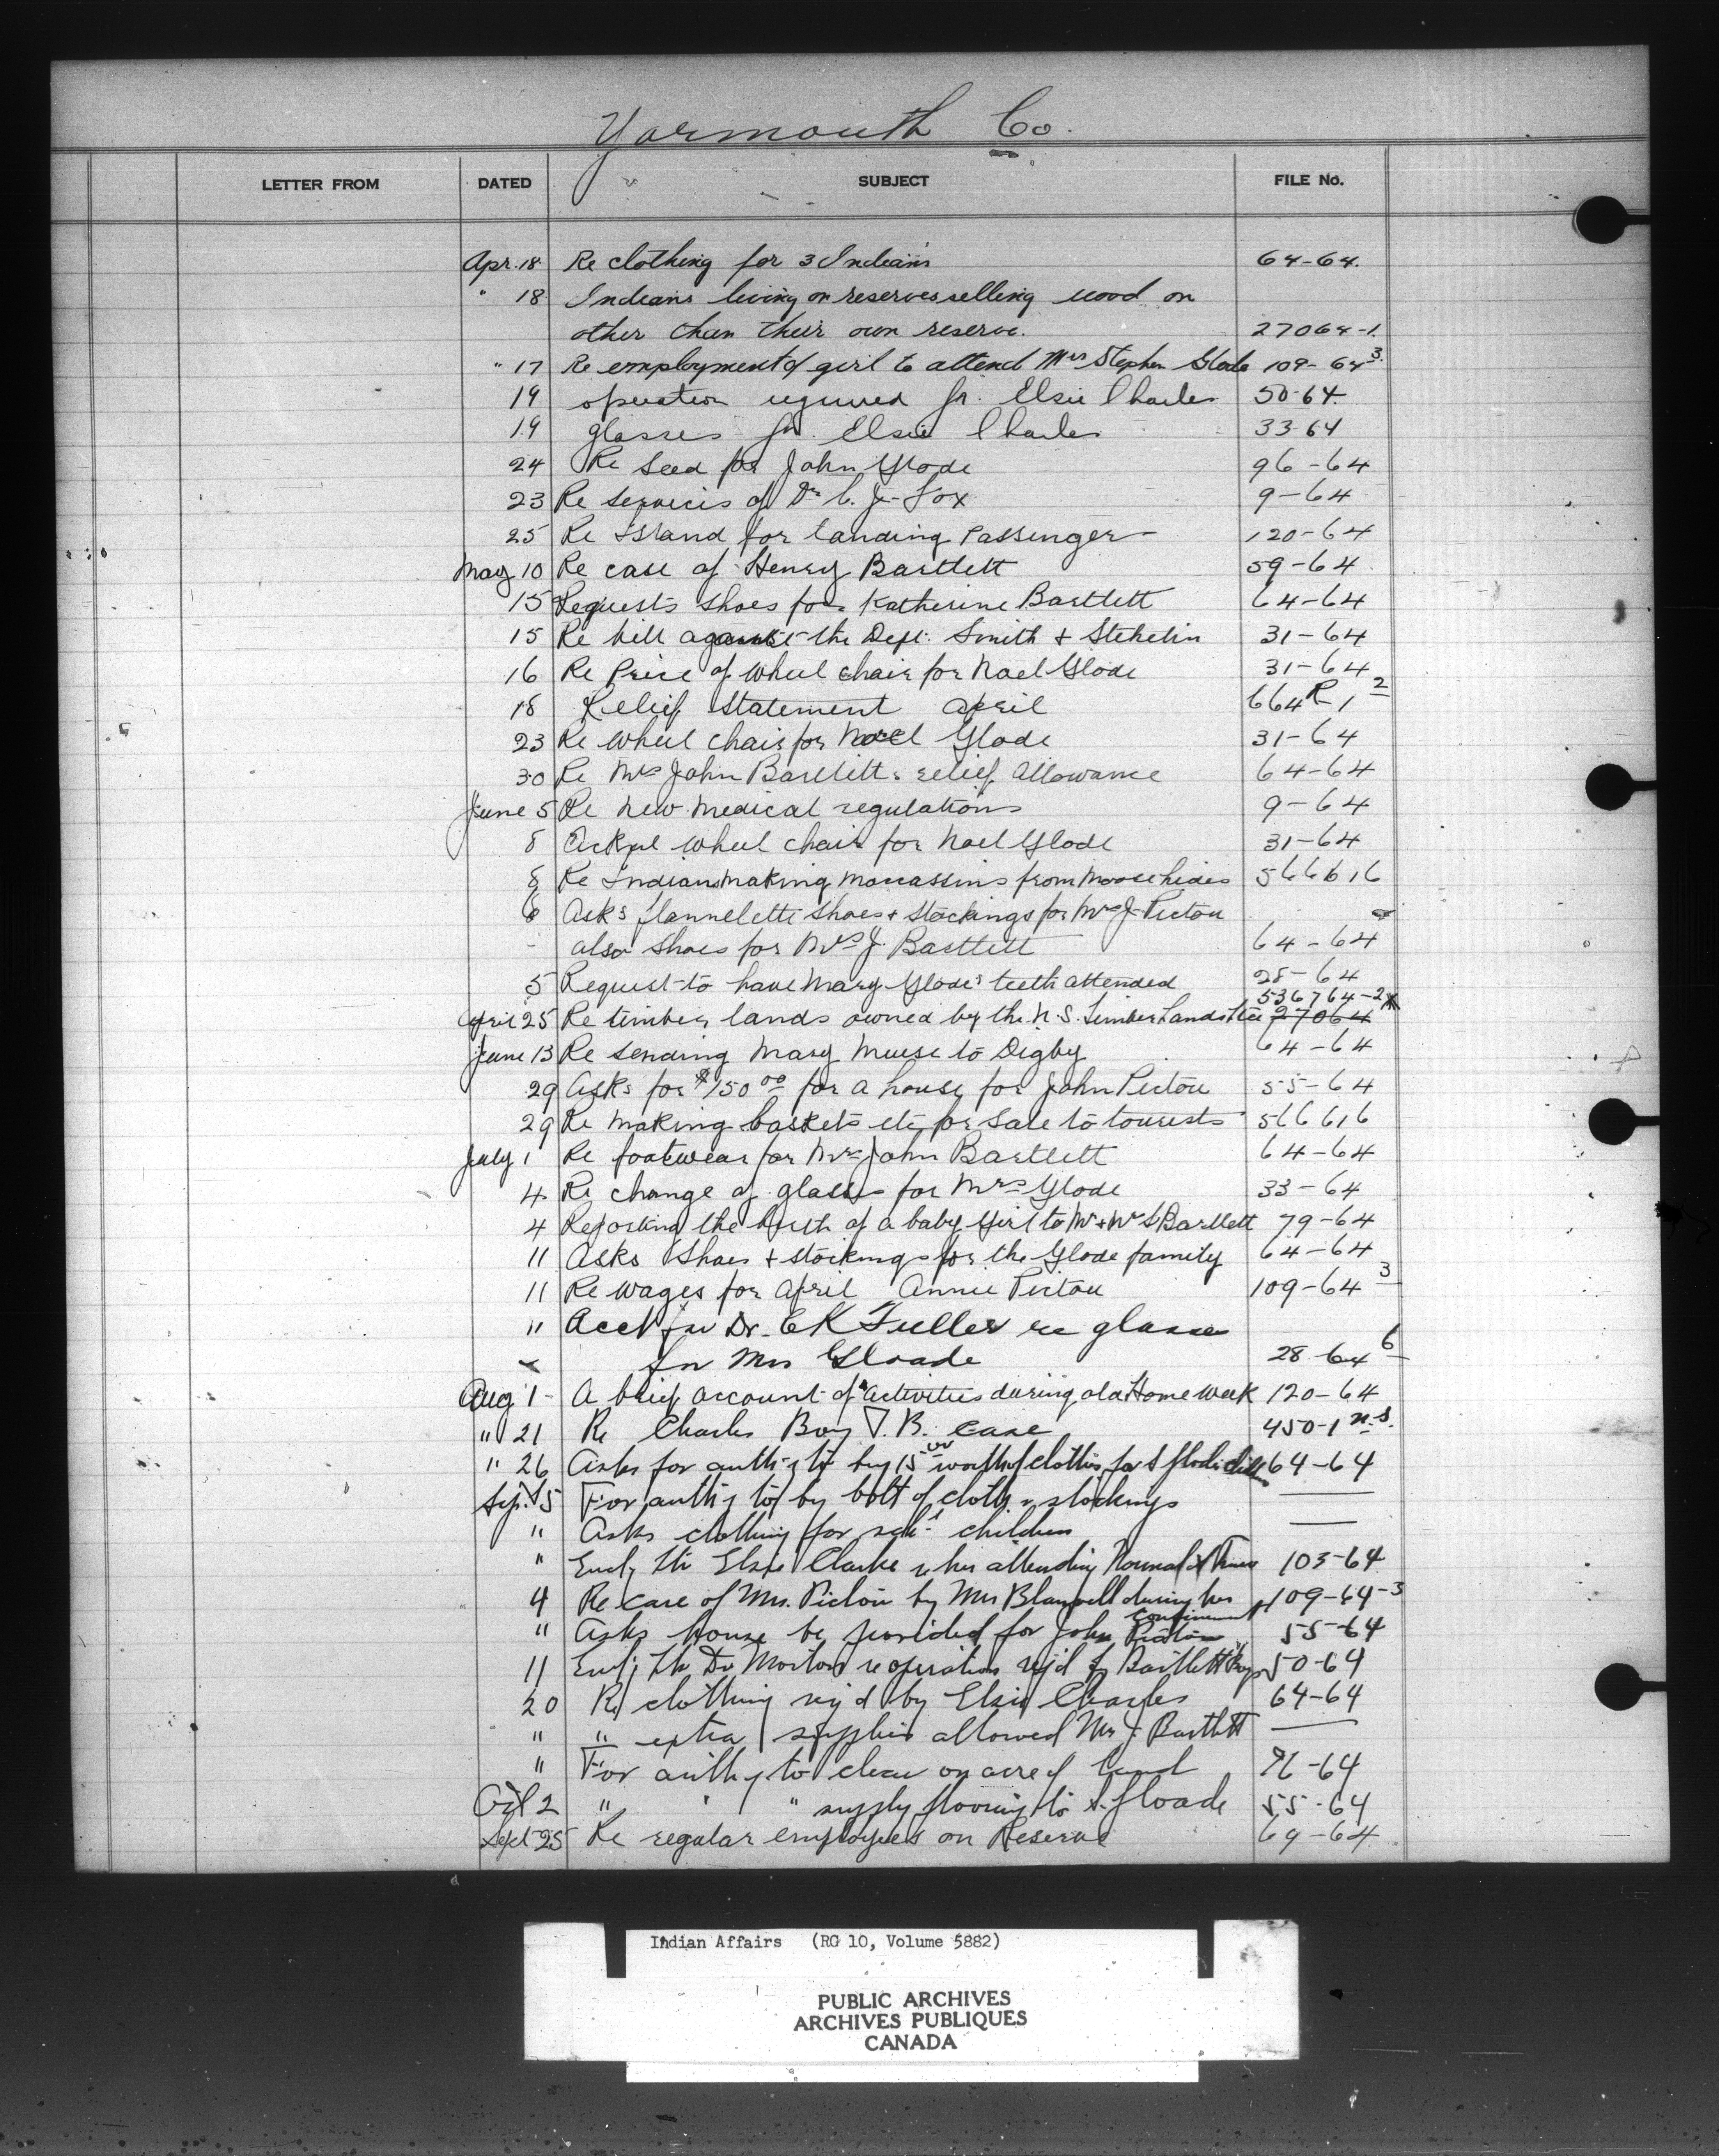 Yarmouth Co.
LETTER FROM DATED SUBJECT FILE No.
Apr. 18 Re clothing for 3 Indians 64-64.
" 18 Indians living on reserves selling wood on
other than their own reserve. 27064-1.
" 17 Re employment of girl to attend Mrs Stephen Glode 109-64 3.
19 operation required for Elsie Charles 50-64
19 glasses for Elsie Charles 33-64
24 Re Seed for John Glode 96-64
23 Re services of Dr C. J. Fox 9-64
25 Re Island for landing Passenger 120-64
May 10 Re case of Henry Bartlett 59-64
15 Requests shoes for Katherine Bartlett 64-64
15 Re bill against the Dept. Smith & Stehelin 31-64
16 Re Price of wheel chair for Noel Glode 31-64
18 Relief Statement April 664 R-1 2
23 Re wheel chair for Noel Glode 31-64
30 Re Mrs John Bartlett's relief allowance 64-64
June 5 Re New Medical regulations 9-64
8 wheel chair for Noel Glode 31-64
8 Re Indians making moccassins from moose hides 566616
6 Asks flannelette shoes & stockings for Mrs J. Pictou
also shoes for Mrs J. Bartlett 64-64
5 Request to have Mary Glode's teeth attended 28-64
536764-2
April 25 Re timber lands owned by the N.S. Timber Lands 27064
June 13 Re sending Mary Muise to Digby 64-64
29 Asks for $150 00 for a house for John Pictou 55-64
29 Re making baskets etc for sale to tourists 566616
July 1 Re footwear for Mrs John Bartlett 64-64
4 Re change of glasses for Mrs Glode 33-64
4 Reporting the birth of a baby girl to Mr & Mrs S Bartlett 79-64
11 Asks Shoes & stockings for the Glode family 64-64
11 Re wages for April Annie Pictou 109-64 3
" Acct for Dr. E K Fuller re glasses
for Mrs Gloade 28-64 6
Aug 1 - A brief account of activities during old Home Week 120-64
" 21 Re Charles Boy T.B. case 450-1 n.s.
" 26 Asks for auth'y to buy 15 00 worth of clothes for S Glode 64-64
Sep. 5 For auth'y to by bolt of cloth & stockings —
" Asks clothing for sch'l children —
" Encl'g ltr Elsie Clarke re her attending Normal at Truro 103-64
4 Re care of Mrs. Pictou by Mrs during her 109-64-3
confinement
" Asks house be provided for John Pictou 55-64
11 Encl'g ltr Dr Morton re operation req'd by Bartlett Boy 50-64
20 Re clothing req'd by Elsie Charles 64-64
" " extra supplies allowed Mrs J. Bartlett —
" For auth'y to clear on acre of land -64
Oct 2 " " " supply flooring to S. Gloade 55-64
Sept 25 Re regular employees on Reserve 69-64
Indian Affairs (RG 10, Volume 5882)
PUBLIC ARCHIVES
ARCHIVES PUBLIQUES
CANADA